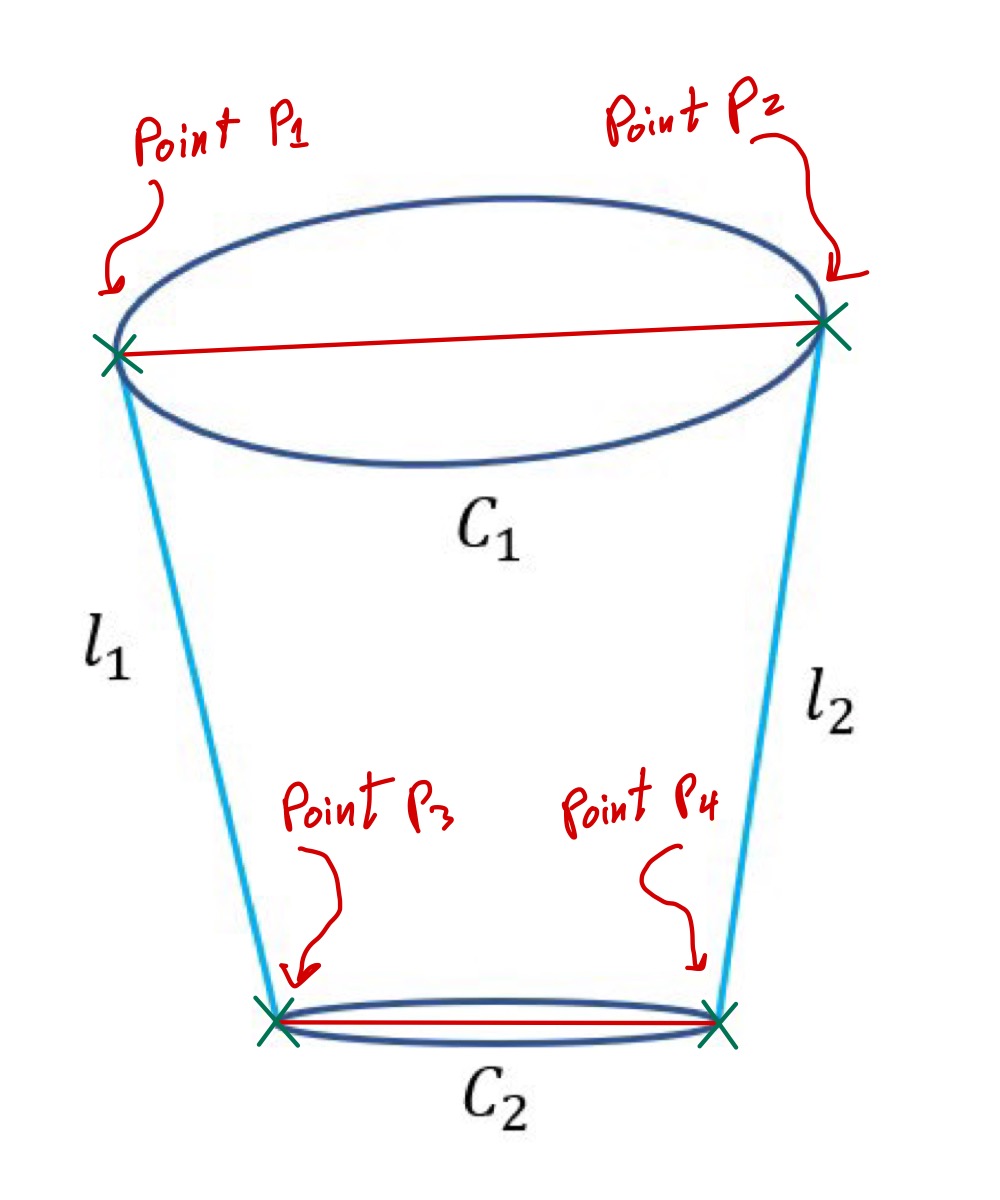 Point P1
Point P2
C1
l1
l2
Point P3
Point P4
C2